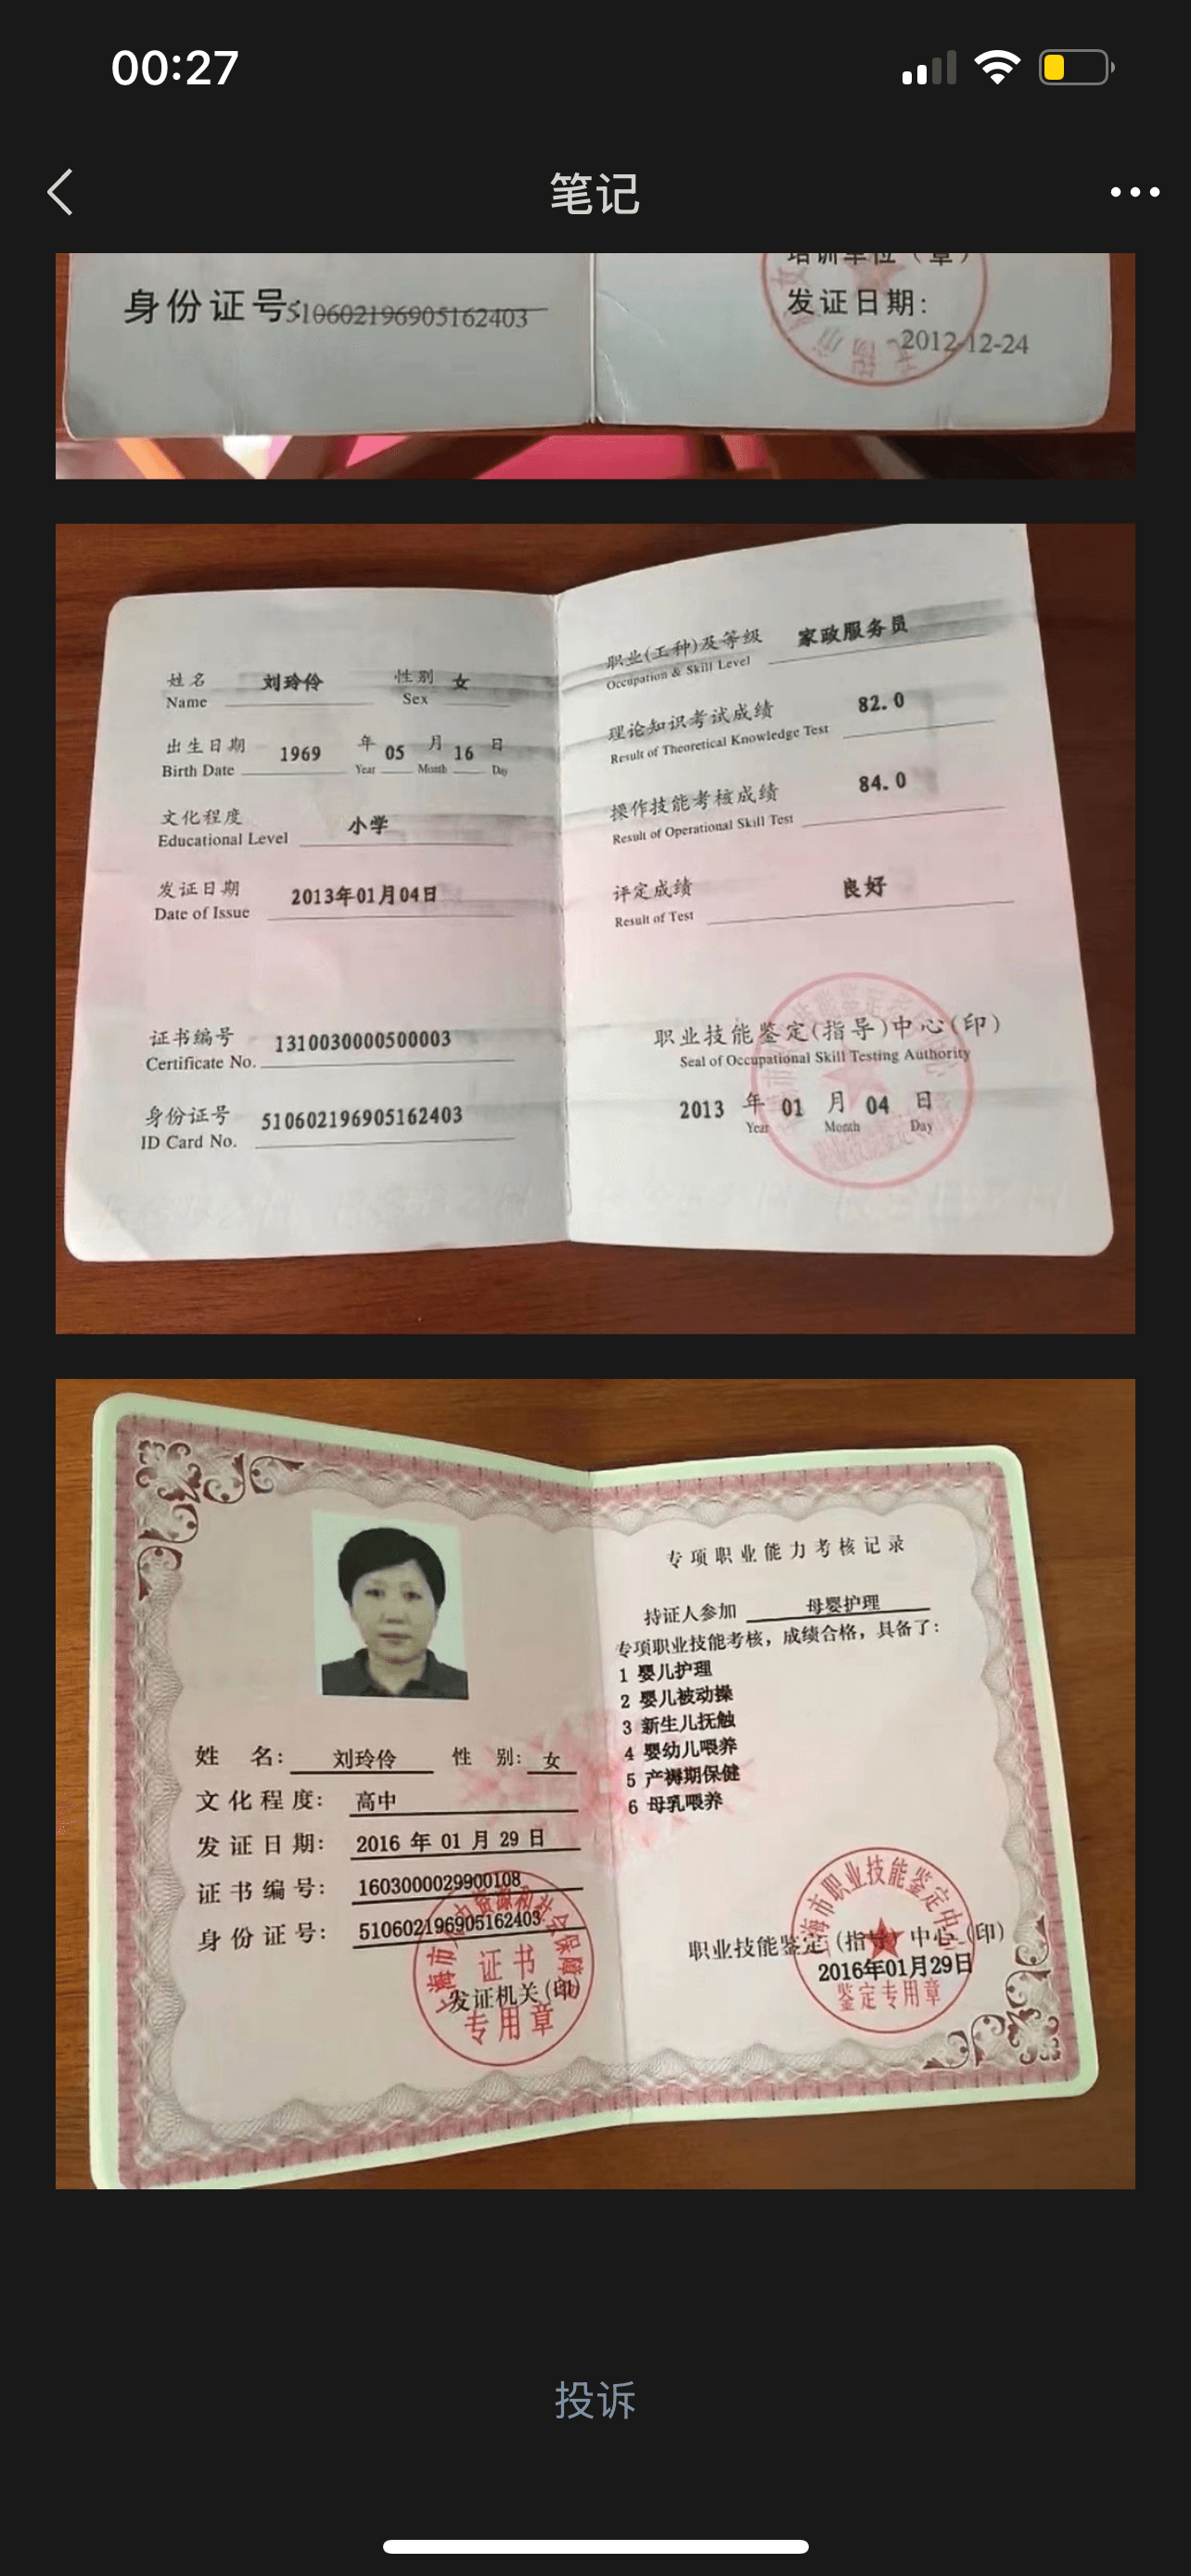 00:27
笔记
培训单位（章）
身份证号:510602196905162403
发证日期:
2012-12-24
姓名 刘玲伶 性别 女
Name Sex
出生日期 1969 年 05 月 16 日
Birth Date Year Month Day
文化程度 小学
Educational Level
发证日期 2013年01月04日
Date of Issue
证书编号 1310030000500003
Certificate No.
身份证号 510602196905162403
ID Card No.
职业(工种)及等级 家政服务员
Occupation & Skill Level
理论知识考试成绩 82.0
Result of Theoretical Knowledge Test
操作技能考核成绩 84.0
Result of Operational Skill Test
评定成绩 良好
Result of Test
职业技能鉴定(指导)中心(印)
Seal of Occupational Skill Testing Authority
2013 年 01 月 04 日
Year Month Day
姓 名: 刘玲伶 性 别: 女
文化程度: 高中
发证日期: 2016 年 01 月 29 日
证书编号: 1603000029900108
身份证号: 510602196905162403
证书
发证机关(印)
专用章
专项职业能力考核记录
持证人参加 母婴护理
专项职业技能考核，成绩合格，具备了:
1 婴儿护理
2 婴儿被动操
3 新生儿抚触
4 婴幼儿喂养
5 产褥期保健
6 母乳喂养
上海市职业技能鉴定中心
职业技能鉴定(指导)中心(印)
2016年01月29日
鉴定专用章
投诉